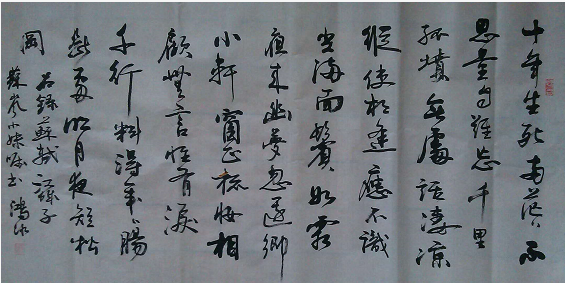 十年生死兩茫々不
思量自難忘千里
孤墳無處話淒涼
縱使相逢應不識
塵滿面鬢如霜
夜來幽夢忽還鄉
小軒窗正梳妝相
顧無言惟有淚
千行料得年々腸
斷處明月夜短松
岡
右錄蘇軾 子